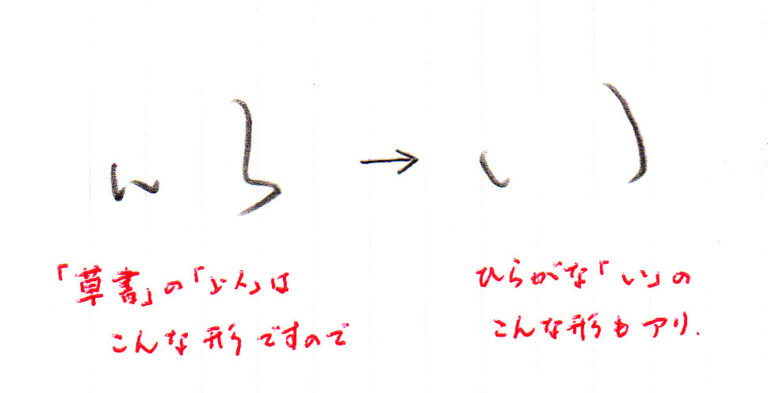 い ろ → い )
「草書」の「以」は
こんな形ですので
ひらがな「い」の
こんな形もアリ.